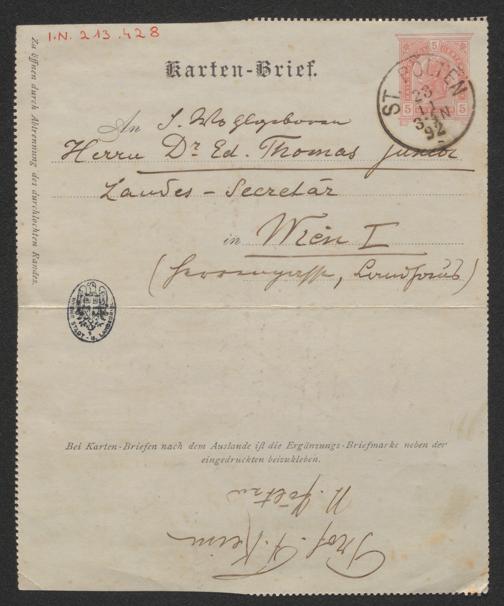 I.N. 213.428
Zu öffnen durch Abtrennung des durchlochten Randes.
Karten-Brief.
ST. PÖLTEN
23
11
3-4 N
92
An S. Wohlgeboren
Herrn Dr Ed. Thomas junior
Landes-Secretär
in Wien I
(Herrengasse, Landhaus)
Bei Karten-Briefen nach dem Auslande ist die Ergänzungs-Briefmarke neben der
eingedruckten beizukleben.
Prof. F. Keim